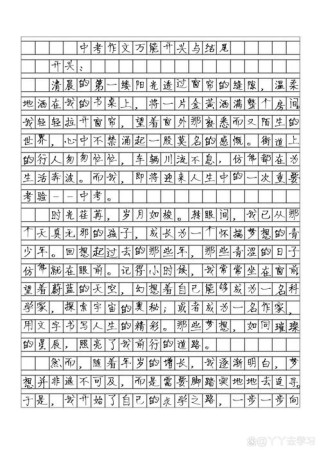 中考作文万能开头与结尾
开头：
清晨的第一缕阳光透过窗帘的缝隙，温柔
地洒在我的书桌上，将一片金黄洒满整个房间
我轻轻拉开窗帘，望着窗外那熟悉而又陌生的
世界，心中不禁涌起一股莫名的感慨。街道上
的行人匆匆忙忙，车辆川流不息，仿佛都在为
生活奔波。而我，即将迎来人生中的一次重要
考验--中考。
时光荏苒，岁月如梭。转眼间，我已从那
个天真无邪的孩子，成长为一个怀揣梦想的青
少年。回想起过去的那些年，那些青涩的日子
仿佛就在眼前。记得小时候，我常常坐在窗前
望着蔚蓝的天空，幻想着自己能够成为一名科
学家，探索宇宙的奥秘；或者成为一名作家，
用文字书写人生的精彩。那些梦想，如同璀璨
的星辰，照亮了我前行的道路。
然而，随着年岁的增长，我逐渐明白，梦
想并非遥不可及，而是需要脚踏实地地去追寻。
于是，我开始了自己的求学之路，一步一步向
@丫丫去学习